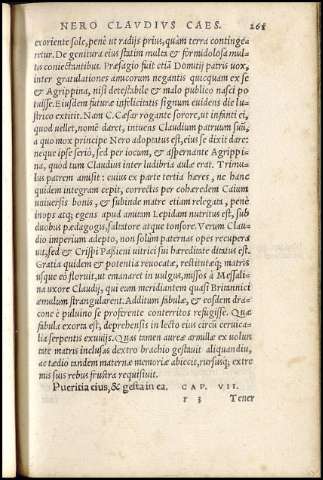 NERO CLAVDIVS CAES. 268
exoriente sole, penè ut radijs prius, quàm terra continge=
retur. De genitura eius statim multa & formidolosa mul=
tis coniectantibus. Præsagio fuit etiã Domitij patris uox,
inter gratulationes amicorum negantis quicquam ex se
& Agrippina, nisi detestabile & malo publico nasci po
tuisse. Eiusdem futuræ infelicitatis signum euidens die lu=
strico extitit. Nam C. Cæsar rogante sorore, ut infanti ei,
quod uellet, nomẽ daret, intuens Claudium patruum suũ,
a quo mox principe Nero adoptatus est, eius se dixit dare:
neque ipse seriò, sed per iocum, & aspernante Agrippi=
na, quod tum Claudius inter ludibria aulæ erat. Trimu=
lus patrem amisit: cuius ex parte tertia hæres, ne hanc
quidem integram cepit, correptis per cohæredem Caium
uniuersis bonis, & subinde matre etiam relegata, penè
inops atq; egens apud amitam Lepidam nutritus est, sub
duobus pædagogis, saltatore atque tonsore. Verum Clau=
dio imperium adepto, non solùm paternas opes recupera
uit, sed & Crispi Passieni uitrici sui hæreditate ditatus est.
Gratia quidem & potentia reuocatæ, restitutæq; matris
usque eò floruit, ut emanaret in uulgus, missos à Messali=
na uxore Claudij, qui eum meridiantem quasi Britannici
æmulum strangularent. Additum fabulæ, & eosdem draco=
ne è puluino se proferente conterritos refugisse. Quæ
fabula exorta est, deprehensis in lecto eius circũ ceruica=
lia serpentis exuuijs. Quas tamen aureæ armillæ ex uolun
tate matris inclusas dextro brachio gestauit aliquandiu,
ac tædio tandem maternæ memoriæ abiecit, rursusq; extre
mis suis rebus frustra requisiuit.
Pueritia eius, & gesta in ea. CAP. VII.
r 3 Tener